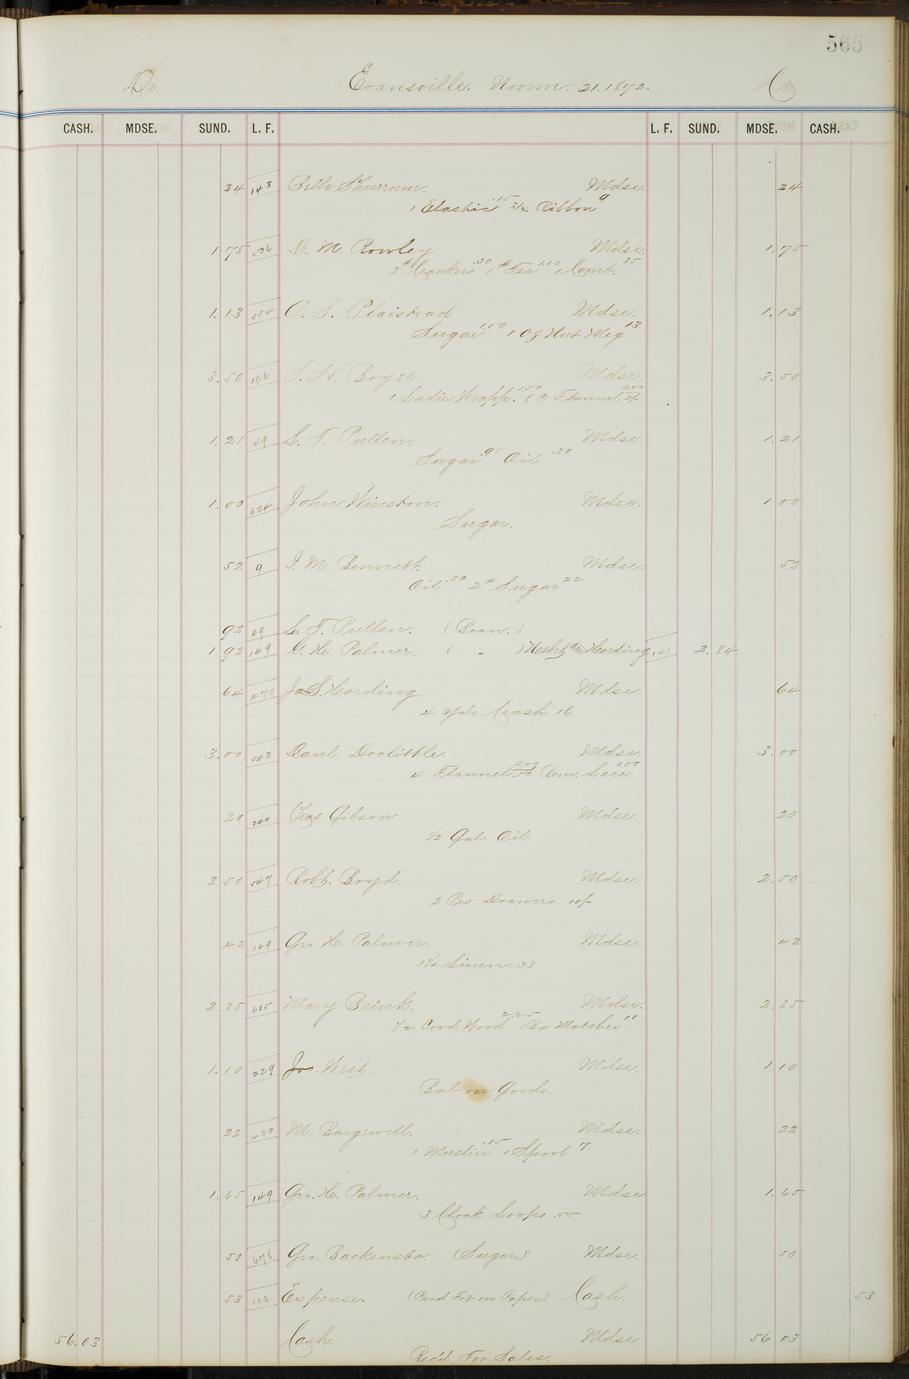 565
Dr. Evansville. Novem. 21. 1872. Cr.
CASH. MDSE. SUND. L. F. L. F. SUND. MDSE. CASH.
24 143 Belle Mdse. 24
1 Elastic .15 3/4 Ribbon 9
1.75 D. M. Rowley Mdse. 1.75
Crackers .30 1 # Tea 1.10 1 Comb. 35
1.13 554 A. S. Plaistead Mdse. 1.13
Sugar 1.00 1 Oz Nut Meg 13
3.50 166 S. H. Boyer. Mdse. 3.50
1 Ladies Wrapp. 1.50 Flannel 2.00
1.21 69 L. T. Pullen. Mdse. 1.21
Sugar .91 Oil .30
1.00 624 John Winston. Mdse. 1.00
Sugar.
52 9 I. M. Bennett. Mdse. 52
Oil .30 2 # Sugar 22
92 69 L. T. Pullen. (Bran.)
1.92 149 G. H. Palmer. ( " ) Harding 2.84
64 476 Jas S. Harding. Mdse 64
4 yds. Crash 16
3.00 543 Danl. Doolittle. Mdse. 3.00
4 Flannel .50 2.00 Rem. Lace. 1.00
20 244 Chas Gibson Mdse. 20
1/2 Gal Oil
2.50 547 Robt. Boyd. Mdse. 2.50
2 Prs Drawers 10/
42 149 Geo. H. Palmer. Mdse. 42
1 1/4 Linen .33
2.35 635 Mary Brink. Mdse. 2.35
1/2 Cord Wood 2.25 1 Bx Matches .10
1.10 229 Jas. West. Mdse. 1.10
Bal on Goods.
22 M. Mdse. 22
1 Muslin .15 1 Spool 7
1.65 149 Geo. H. Palmer. Mdse 1.65
3 Cloak Loops .55
50 678 Geo. Backensto (Sugar) Mdse. 50
53 Expense. (Paid Frt on Paper) Cash. 53
56.03 Cash. Mdse 56.03
Rec'd For Sales.